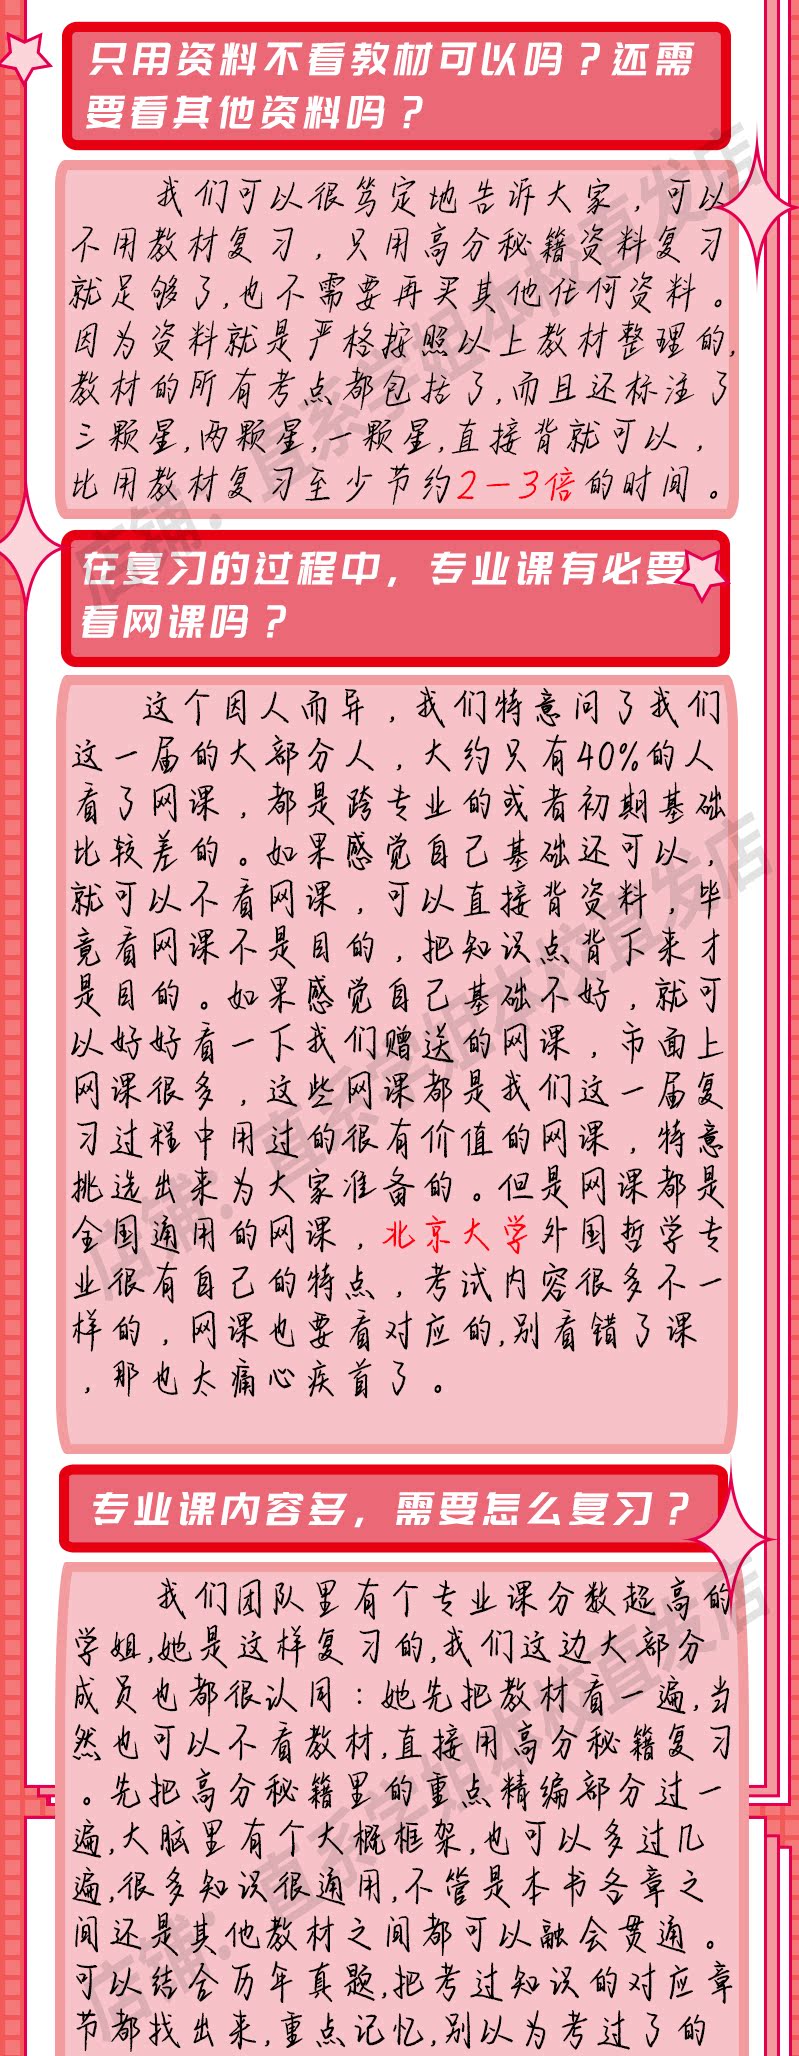 只用资料不看教材可以吗？还需
要看其他资料吗？
我们可以很笃定地告诉大家，可以
不用教材复习，只用高分秘籍资料复习
就足够了,也不需要再买其他任何资料。
因为资料就是严格按照以上教材整理的,
教材的所有考点都包括了,而且还标注了
三颗星,两颗星,一颗星,直接背就可以，
比用教材复习至少节约2-3倍的时间。
在复习的过程中，专业课有必要
看网课吗？
这个因人而异，我们特意问了我们
这一届的大部分人，大约只有40%的人
看了网课，都是跨专业的或者初期基础
比较差的。如果感觉自己基础还可以，
就可以不看网课，可以直接背资料，毕
竟看网课不是目的，把知识点背下来才
是目的。如果感觉自己基础不好，就可
以好好看一下我们赠送的网课，市面上
网课很多，这些网课都是我们这一届复
习过程中用过的很有价值的网课，特意
挑选出来为大家准备的。但是网课都是
全国通用的网课，北京大学外国哲学专
业很有自己的特点，考试内容很多不一
样的，网课也要看对应的,别看错了课
，那也太痛心疾首了。
专业课内容多，需要怎么复习？
我们团队里有个专业课分数超高的
学姐,她是这样复习的,我们这边大部分
成员也都很认同：她先把教材看一遍,当
然也可以不看教材,直接用高分秘籍复习
。先把高分秘籍里的重点精编部分过一
遍,大脑里有个大概框架,也可以多过几
遍,很多知识很通用,不管是本书各章之
间还是其他教材之间都可以融会贯通。
可以结合历年真题,把考过知识的对应章
节都找出来,重点记忆,别以为考过了的
店铺：直系学姐本校直发店
店铺：直系学姐本校直发店
店铺：直系学姐本校直发店